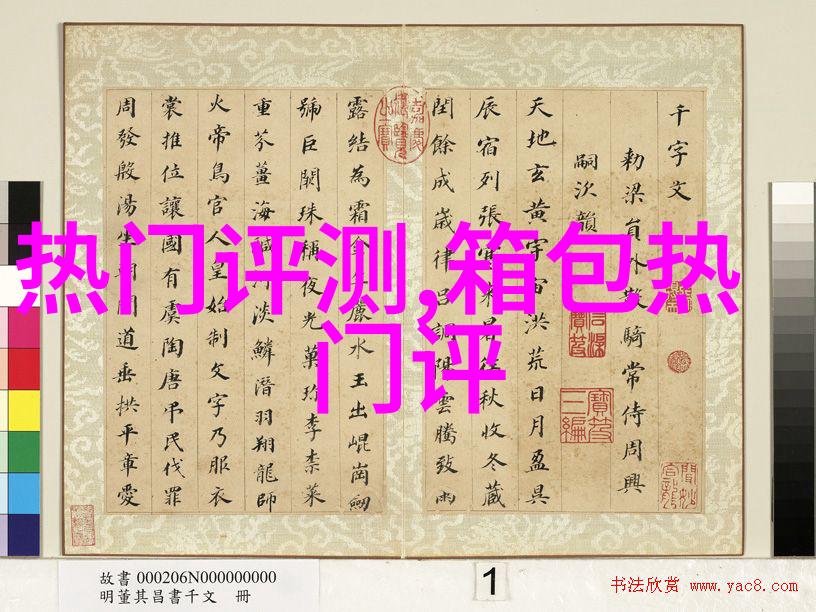 千字文
勑梁員外散騎常侍周興
嗣次韻
天地玄黃宇宙洪荒日月盈昃
辰宿列張寒來暑往秋收冬藏
閏餘成歲律呂調陽雲騰致雨
露結為霜金生麗水玉出崐岡劒
號巨闕珠稱夜光菓珍李柰菜
重芥薑海鹹河淡鱗潛羽翔龍師
火帝鳥官人皇始制文字乃服衣
裳推位讓國有虞陶唐弔民伐罪
周發殷湯坐朝問道垂拱平章愛
热门评测,箱包热
门评
寶笈
三編
故書 000206N000000000
明董其昌書千文 冊
1
书法欣赏 www.yac8.com